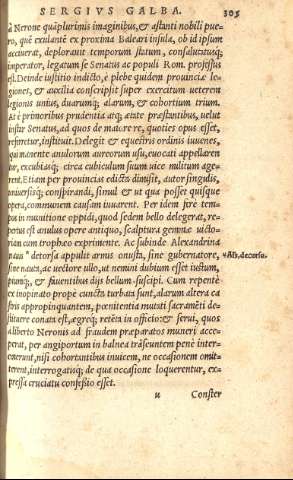 SERGIVS GALBA. 305
à Nerone quàplurimis imaginibus, & astanti nobili pue-
ro, què exulantè ex proxima Baleari insula, ob id ipsum
acciuerat, deplorauit temporum statum, consalutatusq;
imperator, legatum se Senatus ac populi Rom. professus
est. Deinde iustitio indicto, è plebe quidem prouinciæ le-
giones, & auxilia conscripsit super exercitum ueterem
legionis unius, duarumq; alarum, & cohortium trium.
At è primoribus prudentia atq; ætate præstantibus, uelut
instar Senatus, ad quos de maiore re, quoties opus esset,
referretur, instituit. Delegit & equestris ordinis iuuenes,
qui manente anulorum aureorum usu, euocati appellaren
tur, excubiasq; circa cubiculum suum uice militum age-
rent. Etiam per prouincias edictis dimisit, autor singulis,
uniuersisq; conspirandi, simul & ut qua posset quisque
opera, communem causam iuuarent. Per idem ferè tem-
pus in munitione oppidi, quod sedem bello delegerat, re-
pertus est anulus opere antiquo, scalptura gemmæ uicto-
riam cum tropheo exprimente. Ac subinde Alexandrina
nauis detorsa appulit armis onusta, sine gubernatore,
Als, decorsa.
sine nauta, ac uectore ullo, ut nemini dubium esset iustum,
piumq;, & fauentibus dijs bellum suscipi. Cum repentè
ex inopinato propè cuncta turbata sunt, alarum altera ca
stris appropinquantem, pœnitentia mutati sacramēti de-
stituere conata est, ægreq; retēta in officio: & serui, quos
à liberto Neronis ad fraudem præparatos muneri acce-
perat, per angiportum in balnea trāseuntem penè inter-
emerunt, nisi cohortantibus inuicem, ne occasionem omit-
terent, interrogatisq; de qua occasione loquerentur, ex-
pressa cruciatu confessio esset.
u Conster